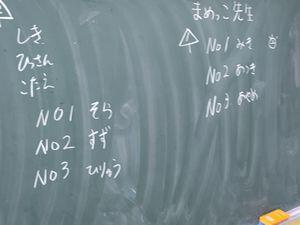 しき
ひっさん
こたえ
NO1 そら
NO2 すず
NO3 ひりゅう
まめっこ先生
NO1 みき
NO2 あつき
NO3 あやめ